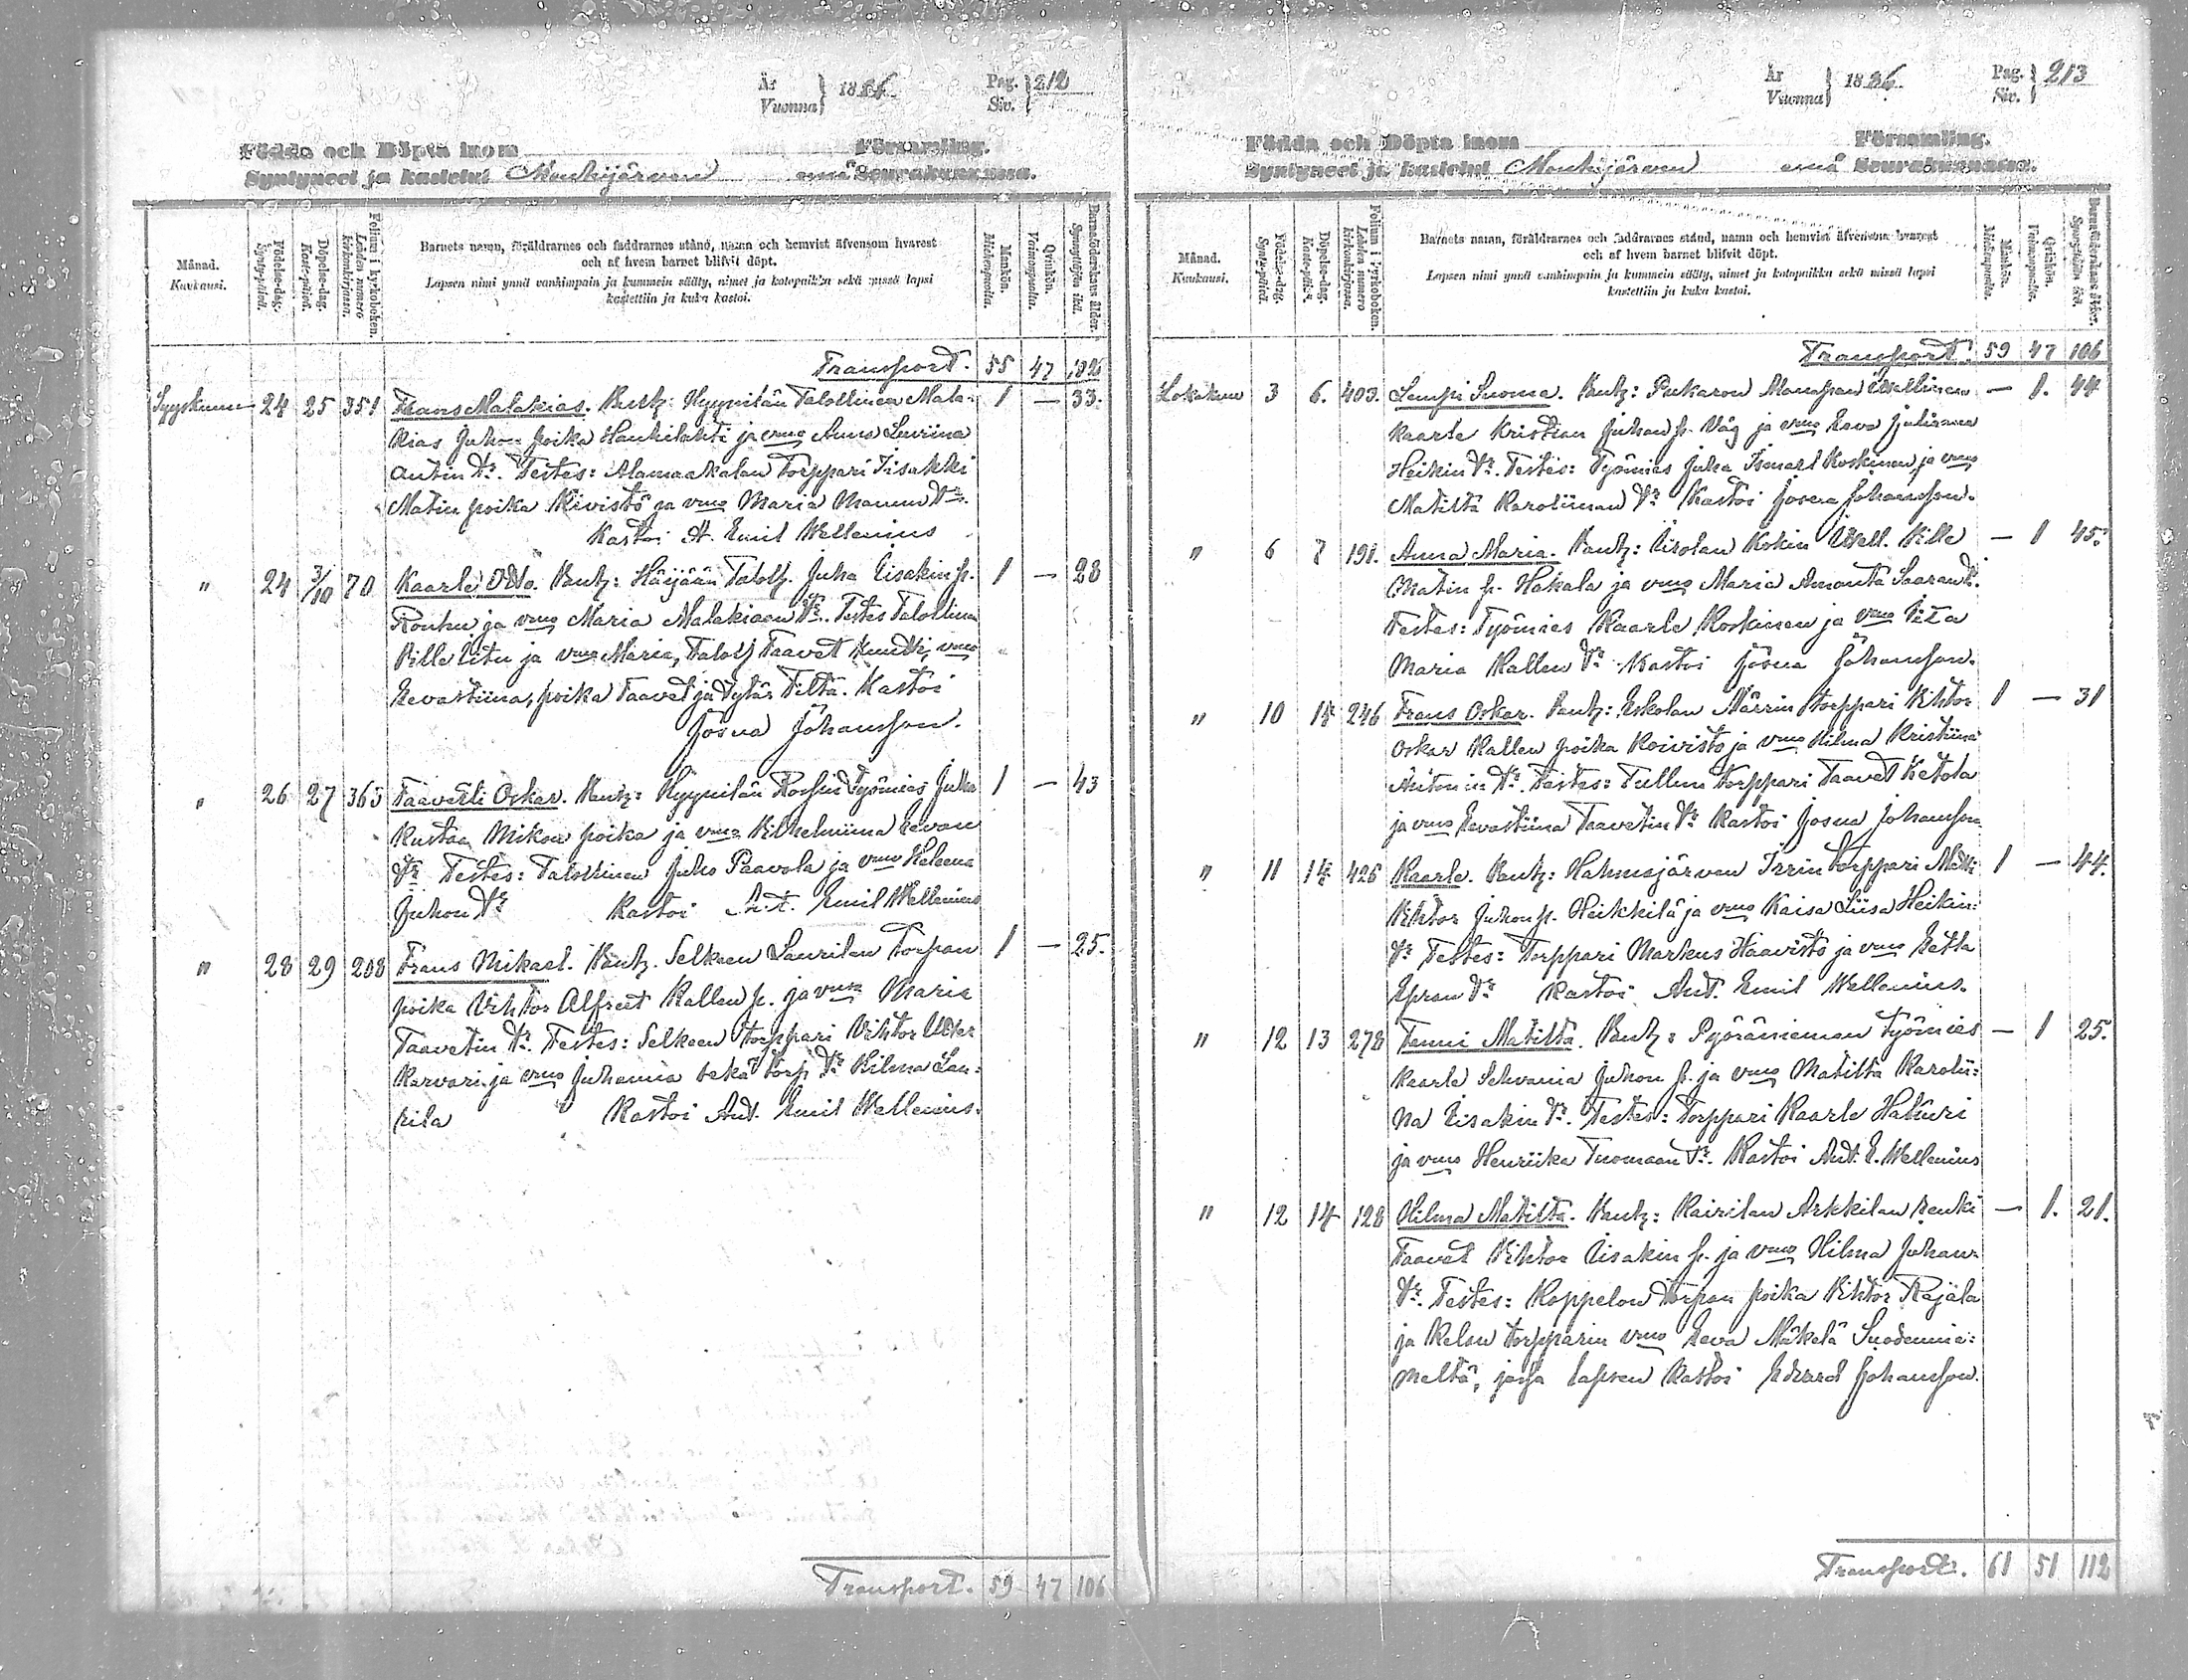 År
Vuonna } 1886. Pag.
Siv. } 212
Födda och Döpta inom Församling.
Syntyneet ja kastetut Mouhijärven emä Seurakunnassa.
Månad.
Kuukausi.
Födelse-dag.
Synty-päivä.
Döpelse-dag.
Kaste-päivä.
Folium i kyrkoboken.
Lehden numero kirkonkirjassa.
Barnets namn, föräldrarnes och faddrarnes stånd, namn och hemvist äfvensom hvarest
och af hvem barnet blifvit döpt.
Lapsen nimi ynnä vanhimpain ja kummein sääty, nimet ja kotopaikka sekä missä lapsi
kastettiin ja kuka kastoi.
Mankön.
Miehenpuolta.
Qvinkön.
Vaimonpuolta.
Barnaföderskans ålder.
Synnyttäjän ikä.
Transport. 55 47 102
Syyskuun 24 25 351 Frans Malakias. Vanh: Hyynilän Talollinen Mala- 1 — 33.
kias Juhon poika Haukilahti ja vmo Anna Loviina
Antin tr. Testes: Alamaakalan Torppari Iisakki
Matin poika Kivistö ja vmo Maria Mannun tr.
Kastoi A. Emil Wellenius
" 24 3/10 70 Kaarle Otto. Vanh: Häijään Taloll. Juha Iisakin p. 1 — 28
Rouhu ja vmo Maria Malakiaan tr. Testes Talollinen
Ville Litu ja vmo Maria, Taloll Taavet Knuutti, vmo
Eevastiina, poika Taavet ja Tytär Tilta. Kastoi
Josua Johansson.
" 26 27 363 Taavetti Oskar. Vanh: Hyynilän Työmies Juha 1 — 43
Kustaa Mikon poika ja vmo Vilhelmiina Eevan
tr Testes: Talollinen Juho Paavola ja vmo Heleena
Juhon tr Kastoi A.t. Emil Wellenius
" 28 29 208 Frans Mikael. Vanh. Selkeen Laurilan Torpan 1 — 25.
poika Vihtor Alfreet Kallen p. ja vmo Maria
Taavetin tr. Testes: Selkeen Torppari Vihtor
Karvari ja vmo Juhanna sekä torp. tr Vilma Lau-
rila Kastoi And. Emil Wellenius.
Transport. 59 47 106
År
Vuonna } 1886. Pag.
Siv. } 213
Födda och Döpta inom Församling.
Syntyneet ja kastetut Mouhijärven emä Seurakunnassa.
Månad.
Kuukausi.
Födelse-dag.
Synty-päivä.
Döpelse-dag.
Kaste-päivä.
Folium i kyrkoboken.
Lehden numero kirkonkirjassa.
Barnets namn, föräldrarnes och faddrarnes stånd, namn och hemvist äfvensom hvarest
och af hvem barnet blifvit döpt.
Lapsen nimi ynnä vanhimpain ja kummein sääty, nimet ja kotopaikka sekä missä lapsi
kastettiin ja kuka kastoi.
Mankön.
Miehenpuolta.
Qvinkön.
Vaimonpuolta.
Barnaföderskans ålder.
Synnyttäjän ikä.
Transport. 59 47 106
Lokakuu 3 6. 403. Lempi Suoma. Vanh: Pukaron Itsellinen — 1. 44
Kaarle Kristian Juhan p. Våg ja vmo Eeva Juliaana
Heikin tr. Testes: Työmies Juha Ismael Koskinen ja vmo
Matilta Karoliinan tr Kastoi Josua Johansson.
" 6 7 191. Anna Maria. Vanh: Uusolan Kokin Itsell. Ville — 1 45.
Matin p. Hakala ja vmo Maria Amanta Saaran t.
Testes: Työmies Kaarle Koskinen ja vmo Liza
Maria Kallen tr Kastoi Josua Johansson.
" 10 14 246 Frans Oskar. Vanh: Eskolan Märrin Torppari Vihtor 1 — 31
Oskar Kallen poika Koivisto ja vmo Hilma Kristiina
Antonin tr. Testes: Tullun Torppari Taavet Ketola
ja vmo Eevastiina Taavetin tr Kastoi Josua Johansson.
" 11 14 426 Kaarle. Vanh: Hahmajärven Irrin Torppari Matti 1 — 44.
Vihtor Juhon p. Heikkilä ja vmo Kaisa Liisa Heikin-
tr Testes: Torppari Markus Haavisto ja vmo Eetla
Epran tr Kastoi And. Emil Wellenius.
" 12 13 278 Fanni Matilta. Vanh: Pyöräniemen Työmies — 1 25.
Kaarle Sehvania Juhon p. ja vmo Matilta Karolii-
na Iisakin tr. Testes: Torppari Kaarle Hakuri
ja vmo Henriika Tuomaan tr. Kastoi And. E. Wellenius
" 12 14 128 Hilma Matilta. Vanh: Kairilan Arkkilan renki — 1. 21.
Taavet Vihtor Iisakin p. ja vmo Hilma Juhan-
tr. Testes: Koppelon Torpan poika Vihtor Rajala
ja Kelan torpparin vmo Eeva Mäkelä Suodennie-
meltä, jossa lapsen kastoi Edvard Johansson.
Transport. 61 51 112